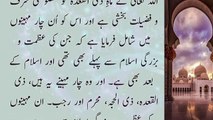 اللہ تعالیٰ نے ماہِ ذی القعدہ کو خصوصی شرف
و فضیلت بخشی ہے اور اس کو اُن چار مہینوں
میں شامل فرمایا ہے کہ جن کی عظمت و
بزرگی اسلام سے پہلے بھی تھی اور اسلام کے
بعد بھی ہے۔ اور وہ چار مہینے یہ ہیں، ذی
القعدہ، ذی الحجہ، محرم اور رجب۔ ان مہینوں
کی عظمت و بزرگی